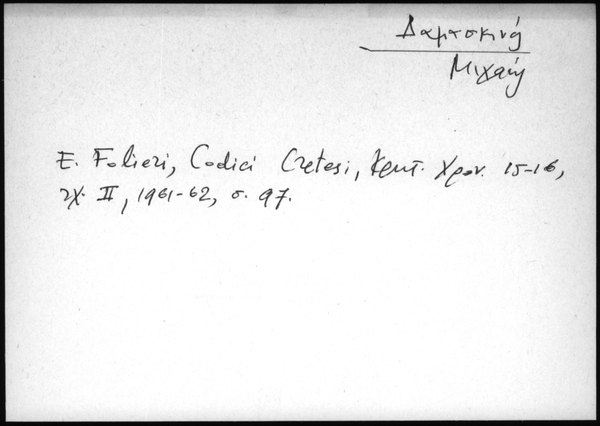 Δαμασκινή
Μιχαήλ
E. Folieri, Codici Cretesi, Κρητ. Χρον. 15-16,
τχ. II, 1961-62, σ. 97.